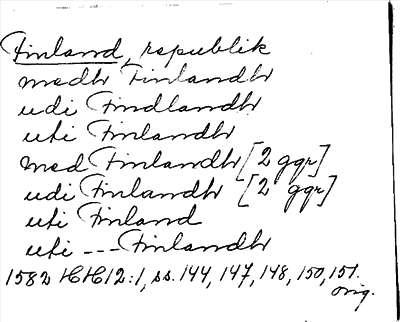 Finland, republik
medh Finlandh
udi Findlandh
uti Finlandh
med Finlandh [2 ggr]
udi Finlandh [2 ggr]
uti Finland
uti --- Finlandh
1582 HH12:1, ss. 144, 147, 148, 150, 151.
orig.